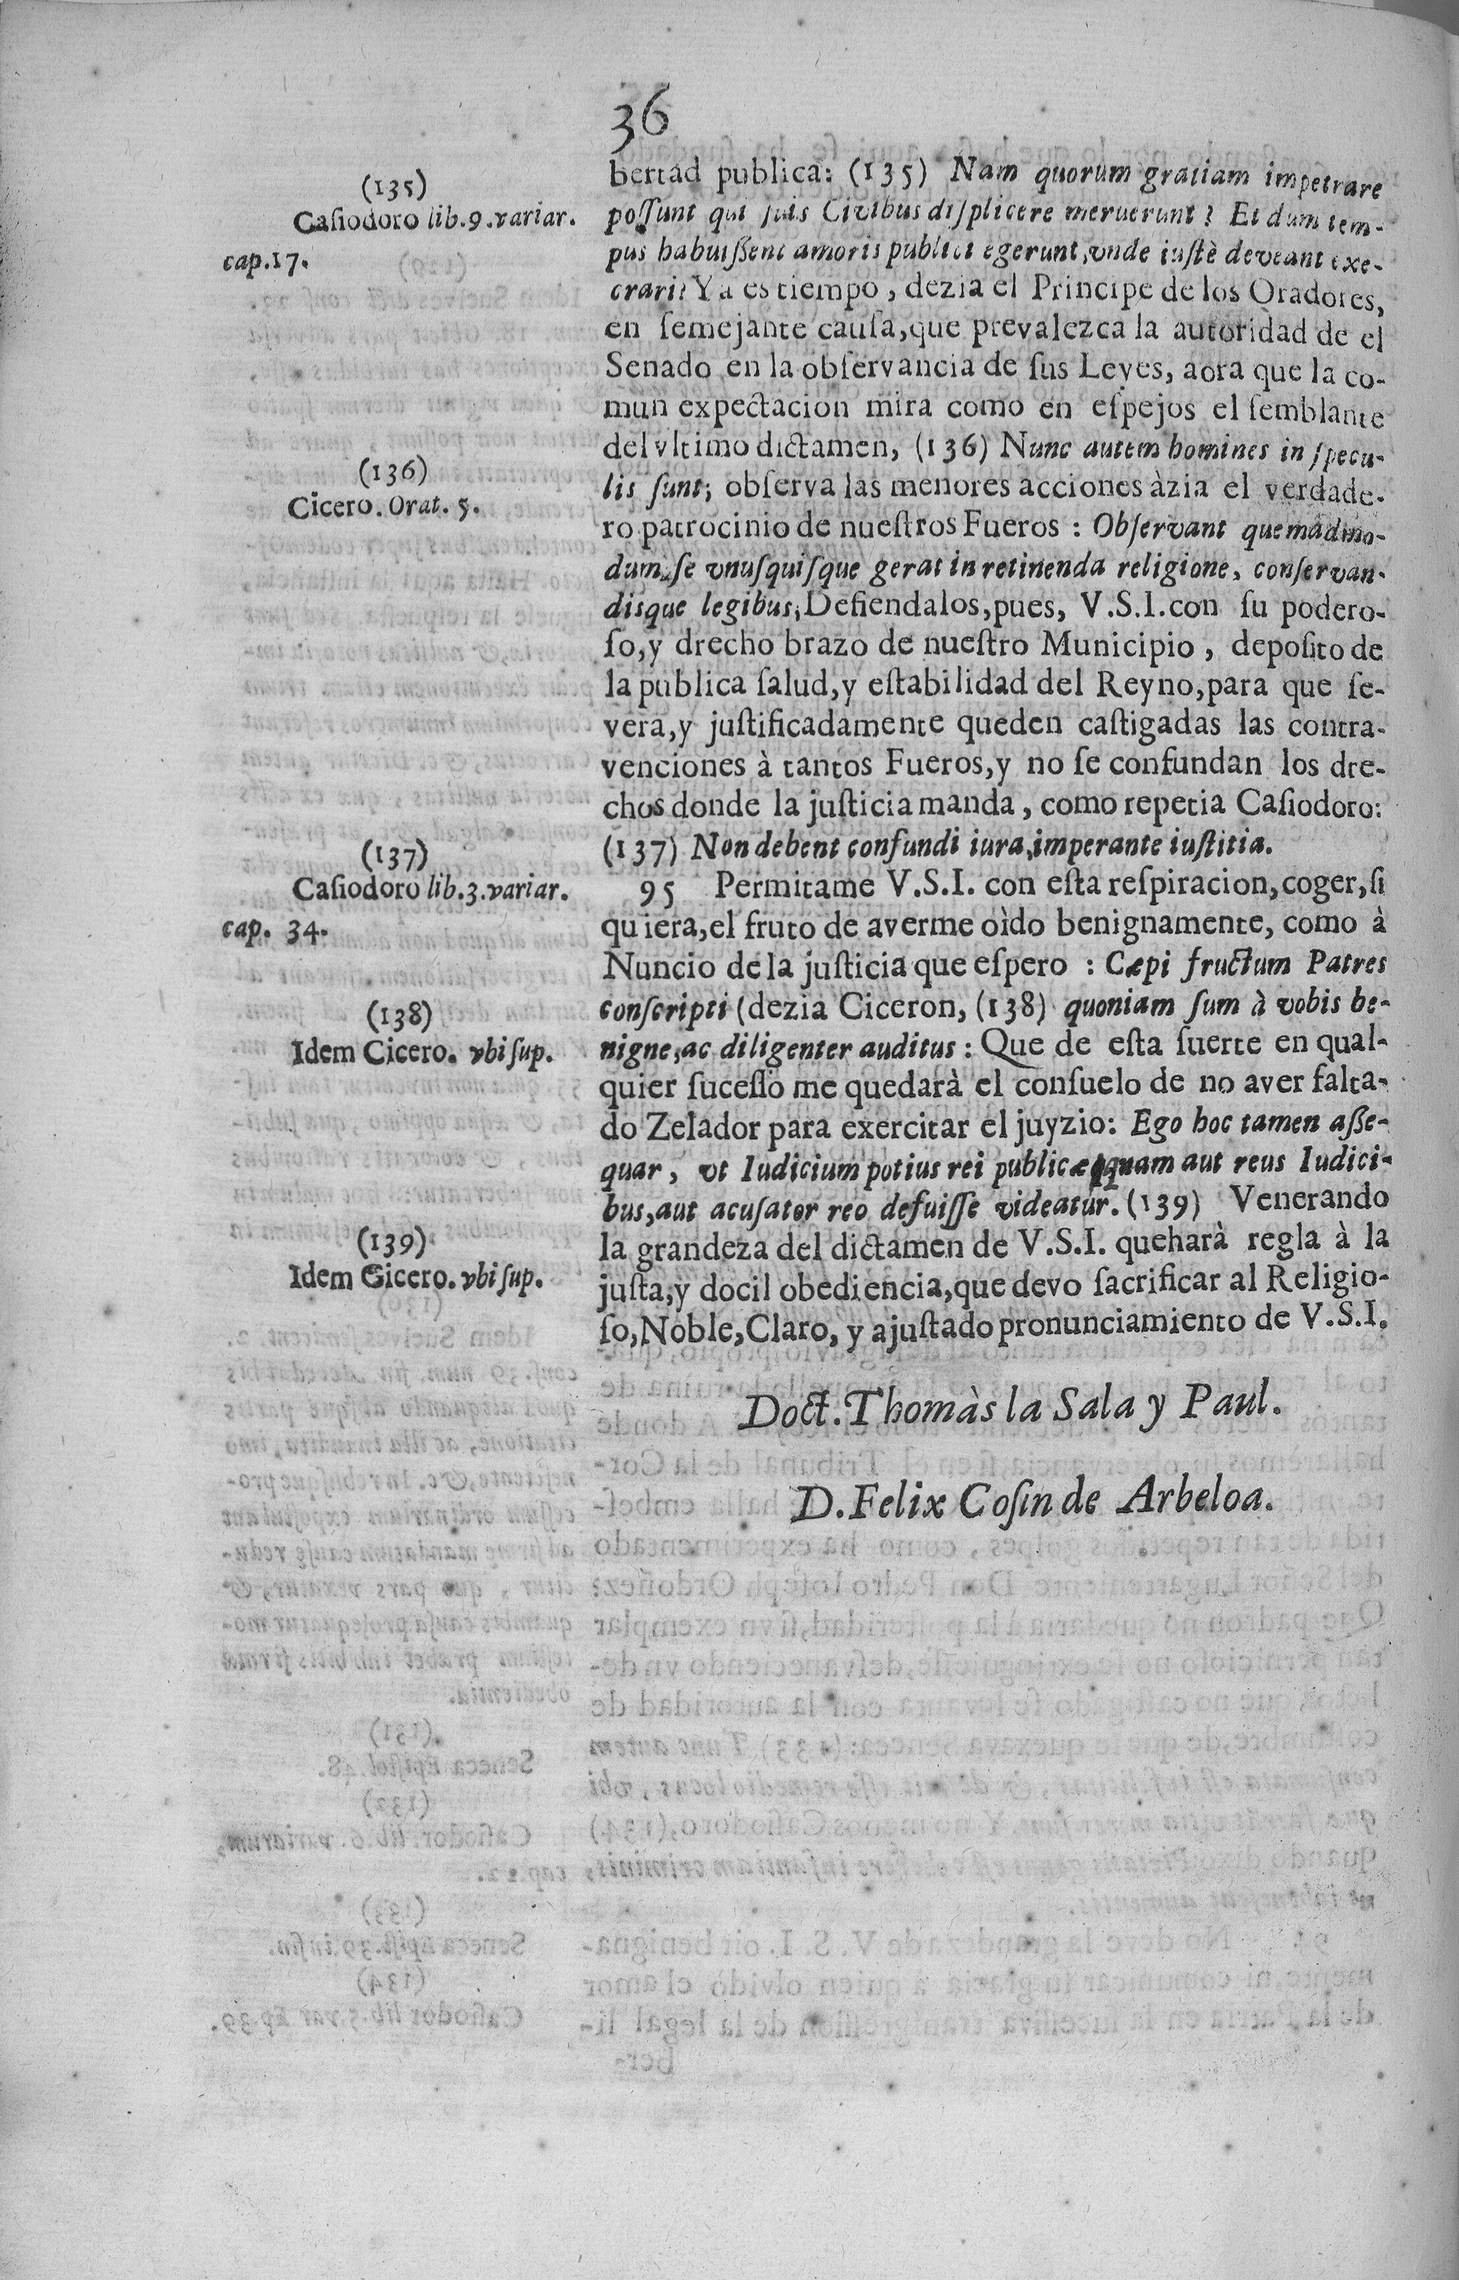 36
(135)
Casiodoro lib.9.variar.
cap.17.
(136)
Cicero. Orat. 5.
(137)
Casiodoro lib.3.variar.
cap. 34.
(138)
Idem Cicero. vbi sup.
(139)
Idem Cicero. vbi sup.
bertad publica: (135) Nam quorum gratiam impetrare
poſſunt qui ſuis Civibus diſplicere meruerunt? Et dum tem-
pus habuiſſent amoris publici egerunt, vnde iuſtè deveant exe-
crari? Ya es tiempo, dezia el Principe de los Oradores,
en ſemejante cauſa, que prevalezca la autoridad de el
Senado en la obſervancia de ſus Leyes, aora que la co-
mun expectacion mira como en eſpejos el ſemblante
del vltimo dictamen, (136) Nunc autem homines in ſpecu-
lis ſunt; obſerva las menores acciones àzia el verdade-
ro patrocinio de nueſtros Fueros : Obſervant quemadmo-
dum ſe vnuſquiſque gerat in retinenda religione, conſervan-
disque legibus; Defiendalos, pues, V.S.I. con ſu podero-
ſo, y drecho brazo de nueſtro Municipio, depoſito de
la publica ſalud, y eſtabilidad del Reyno, para que ſe-
vera, y juſtificadamente queden caſtigadas las contra-
venciones à tantos Fueros, y no ſe confundan los dre-
chos donde la juſticia manda, como repetia Caſiodoro:
(137) Non debent confundi iura, imperante iuſtitia.
95 Permitame V.S.I. con eſta reſpiracion, coger, ſi
quiera, el fruto de averme oìdo benignamente, como à
Nuncio de la juſticia que eſpero : Cæpi fructum Patres
conſcripti (dezia Ciceron, (138) quoniam ſum à vobis be-
nigne, ac diligenter auditus : Que de eſta ſuerte en qual-
quier ſuceſſo me quedarà el conſuelo de no aver falta-
do Zelador para exercitar el juyzio: Ego hoc tamen aſſe-
quar, vt Iudicium potius rei publicæ, quam aut reus Iudici-
bus, aut acuſator reo defuiſſe videatur. (139) Venerando
la grandeza del dictamen de V.S.I. que harà regla à la
juſta, y docil obediencia, que devo ſacrificar al Religio-
ſo, Noble, Claro, y ajuſtado pronunciamiento de V.S.I.
Doct. Thomàs la Sala y Paul.
D. Felix Coſin de Arbeloa.